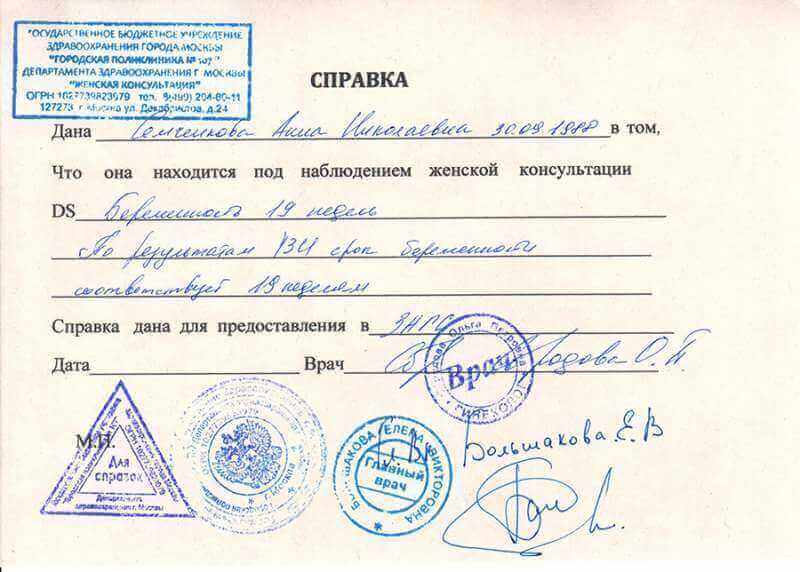 "ГОСУДАРСТВЕННОЕ БЮДЖЕТНОЕ УЧРЕЖДЕНИЕ
ЗДРАВООХРАНЕНИЯ ГОРОДА МОСКВЫ
"ГОРОДСКАЯ ПОЛИКЛИНИКА № 107
ДЕПАРТАМЕНТА ЗДРАВООХРАНЕНИЯ Г МОСКВЫ
"ЖЕНСКАЯ КОНСУЛЬТАЦИЯ"
ОГРН 1027739823079 тел. 8(499) 204-80-11
127273 г Москва ул. Декабристов, д.24
СПРАВКА
Дана Семченкова Анна Николаевна 30.09.1988 в том,
Что она находится под наблюдением женской консультации
DS Беременность 19 недель
По результатам УЗИ срок беременности
соответствует 19 неделям
Справка дана для предоставления в ЗАГС
Дата Врач О.П.
Ольга Петровна
Врач
ГИНЕКОЛОГ
М.П.
Для
справок
Департамент
здравоохранения г. Москвы
БОЛЬШАКОВА ЕЛЕНА ВИКТОРОВНА
Главный
врач
Большакова Е.В